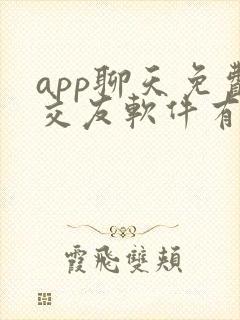 app聊天免費
交友軟件有
霞飛雙頰